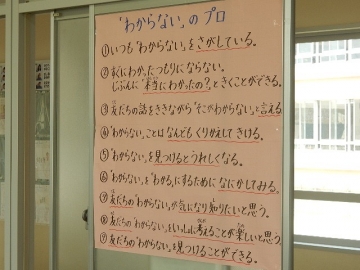 "わからない"のプロ
①いつも"わからない"をさがしている。
②すぐにわかったつもりにならない。
じぶんに"本当にわかったの?"ときくことができる。
③友だちの話をききながら"そこがわからない"と言える
④"わからない"ことはなんどもくりかえしてきける。
⑤"わからない"を見つけるとうれしくなる。
⑥"わからない"を"わかる"にするためになにかしてみる。
⑦友だちの"わからない"が気になり知りたいと思う。
⑧友だちの"わからない"をいっしょに考えることが楽しいと思う。
⑨友だちの"わからない"を見つけることができる。